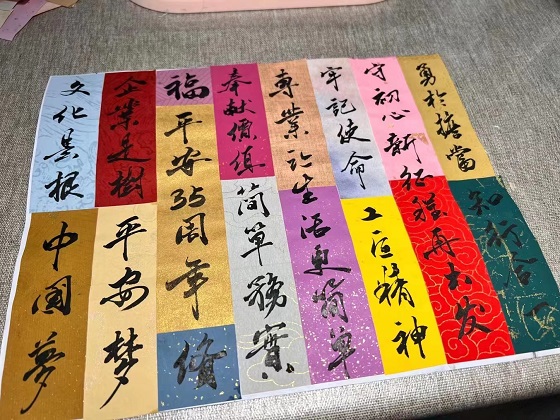 勇於擔當
知行合一
守初心新征程再出发
牢記使命
工匠精神
專業让生活更簡單
奉献價值
简單務實
福
平安35周年
企業是樹
平安梦
文化是根
中國夢